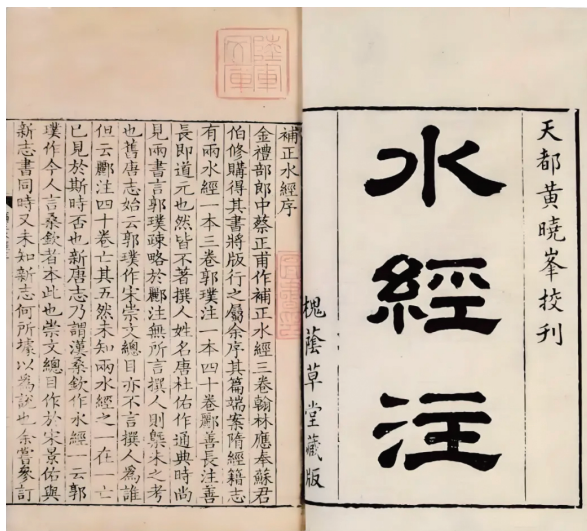 天都黄曉峯挍刊
水經注
槐蔭草堂藏版
陸軍文庫
補正水經序
金禮部郎中蔡正甫作補正水經三卷翰林應奉蘇君
伯修購得其書將版行之属余序其篇端案隋經籍志
有兩水經一本三卷郭璞注一本四十卷酈善長注善
長即道元也然皆不著撰人姓名唐杜佑作通典時尚
見兩書言郭璞疎略於酈注無所言撰人則槩未之考
也舊唐志始云郭璞作宋崇文總目亦不言撰人為誰
但云酈注四十卷亡其五然未知兩水經之一在亡
已見於斯時否也新唐志乃謂漢桑欽作水經一云郭
璞作今人言桑欽者本此也崇文總目作於宋景佑與
新志書同時又未知新志何所據以為說也余嘗參訂